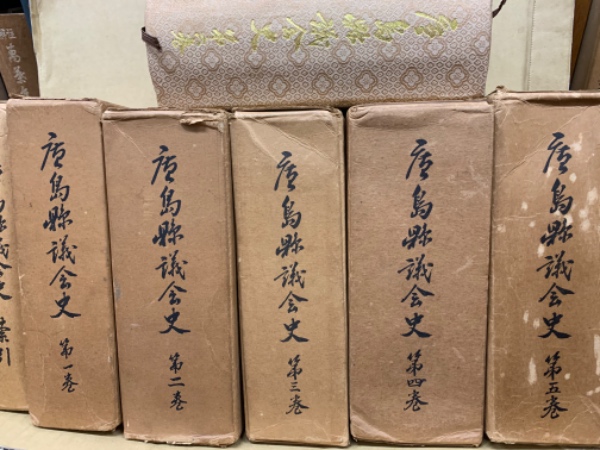 廣島縣議会史 第一巻
廣島縣議会史 第二巻
廣島縣議会史 第三巻
廣島縣議会史 第四巻
廣島縣議会史 第五巻
島縣議会史 索引